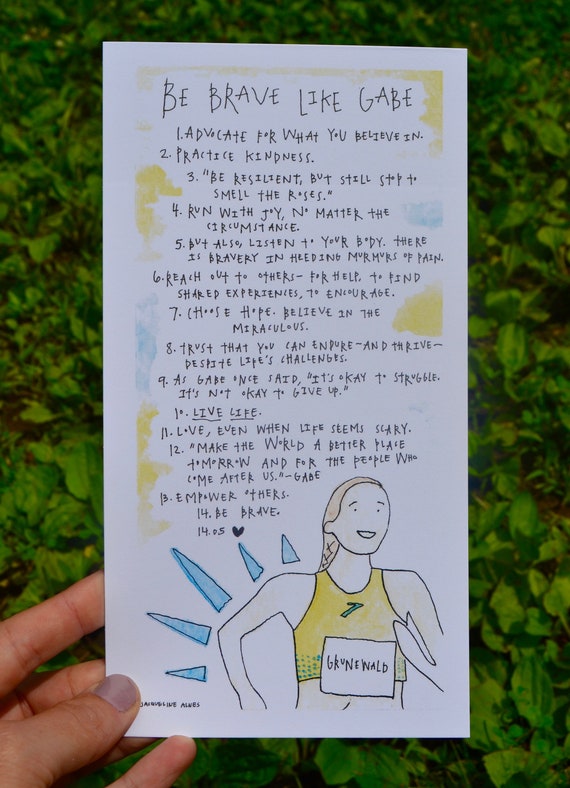 BE BRAVE LIKE GABE
1. ADVOCATE FOR WHAT YOU BELIEVE IN.
2. PRACTICE KINDNESS.
3. "BE RESILIENT, BUT STILL STOP TO
SMELL THE ROSES."
4. RUN WITH JOY, NO MATTER THE
CIRCUMSTANCE.
5. BUT ALSO, LISTEN TO YOUR BODY. THERE
IS BRAVERY IN HEEDING MURMURS OF PAIN.
6. REACH OUT TO OTHERS- FOR HELP, TO FIND
SHARED EXPERIENCES, TO ENCOURAGE.
7. CHOOSE HOPE. BELIEVE IN THE
MIRACULOUS.
8. TRUST THAT YOU CAN ENDURE-AND THRIVE-
DESPITE LIFE'S CHALLENGES.
9. AS GABE ONCE SAID, "IT'S OKAY TO STRUGGLE.
IT'S NOT OKAY TO GIVE UP."
10. LIVE LIFE.
11. LOVE, EVEN WHEN LIFE SEEMS SCARY.
12. "MAKE THE WORLD A BETTER PLACE
TOMORROW AND FOR THE PEOPLE WHO
COME AFTER US."-GABE
13. EMPOWER OTHERS.
14. BE BRAVE.
14.05 ♥
GRUNEWALD
JACQUELINE ALNES